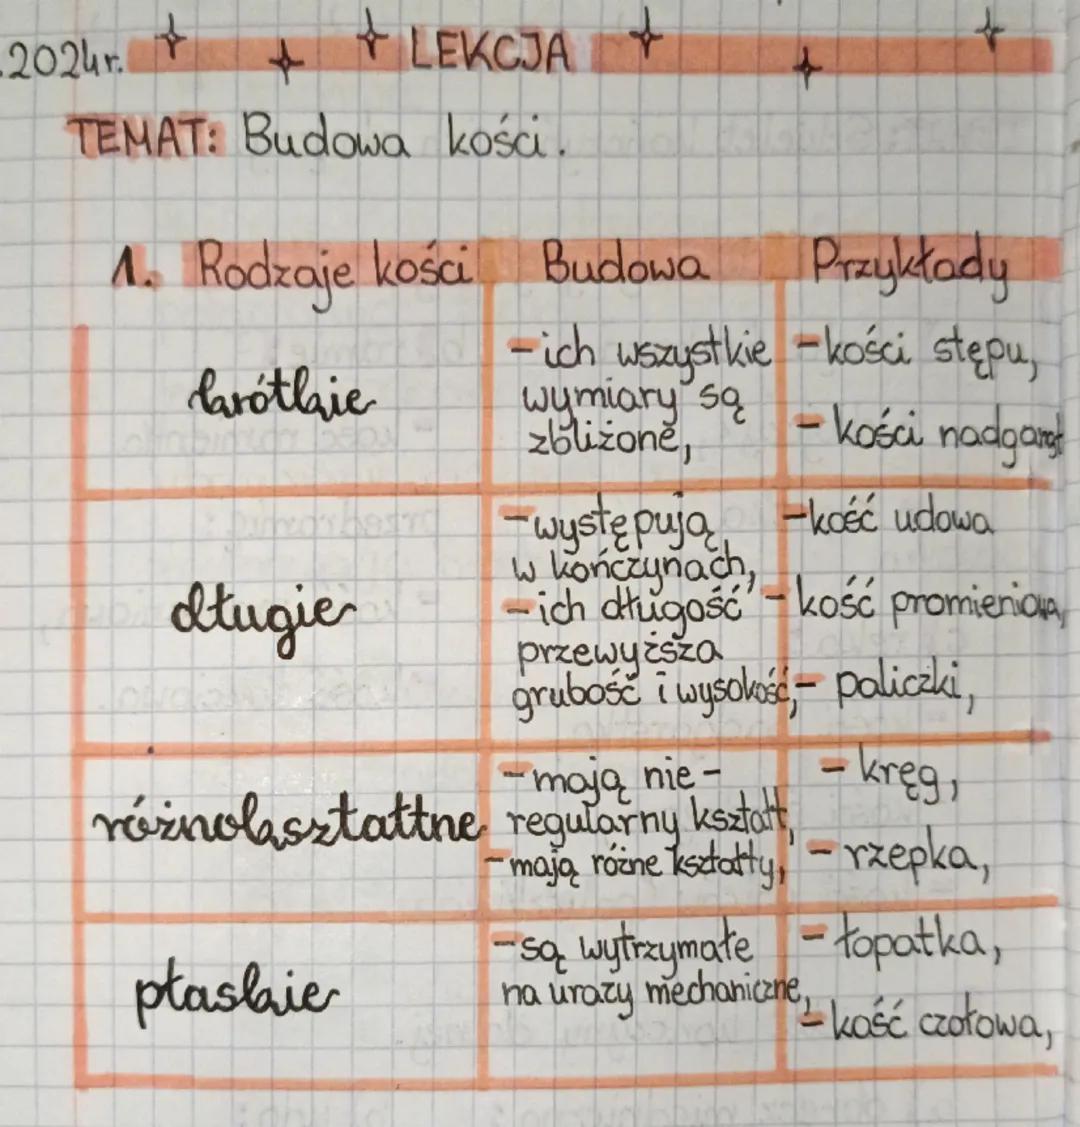 .2024r. LEKCJA
TEMAT: Budowa kości.
1. Rodzaje kości Budowa Przykłady
krótkie
-ich wszystkie
wymiary są
zbliżone,
-kości stępu,
-kości nadgarst
długie
-występują
w kończynach,
-ich długość
przewyższa
grubość i wysokość,
-kość udowa
-kość promieniowa,
-paliczki,
różnokształtne
-mają nie-
regularny kształt,
-mają różne kształty,
-kręg,
-rzepka,
płaskie
-są wytrzymałe
na urazy mechaniczne,
-łopatka,
-kość czołowa,